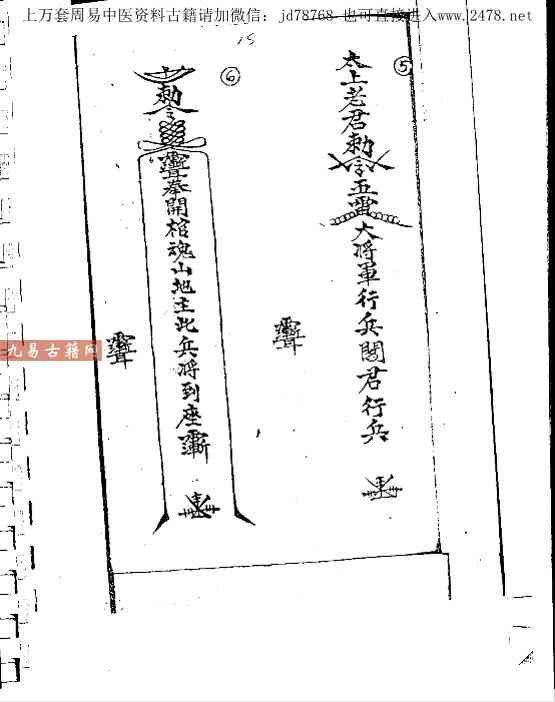 上万套周易中医资料古籍请加微信：jd78768 也可直接进入www.2478.net
15
⑤
太上老君勅令五雷大将軍行兵閻君行兵
⑥
勅令
奉開棺魂山地主此兵将到座
九易古籍网